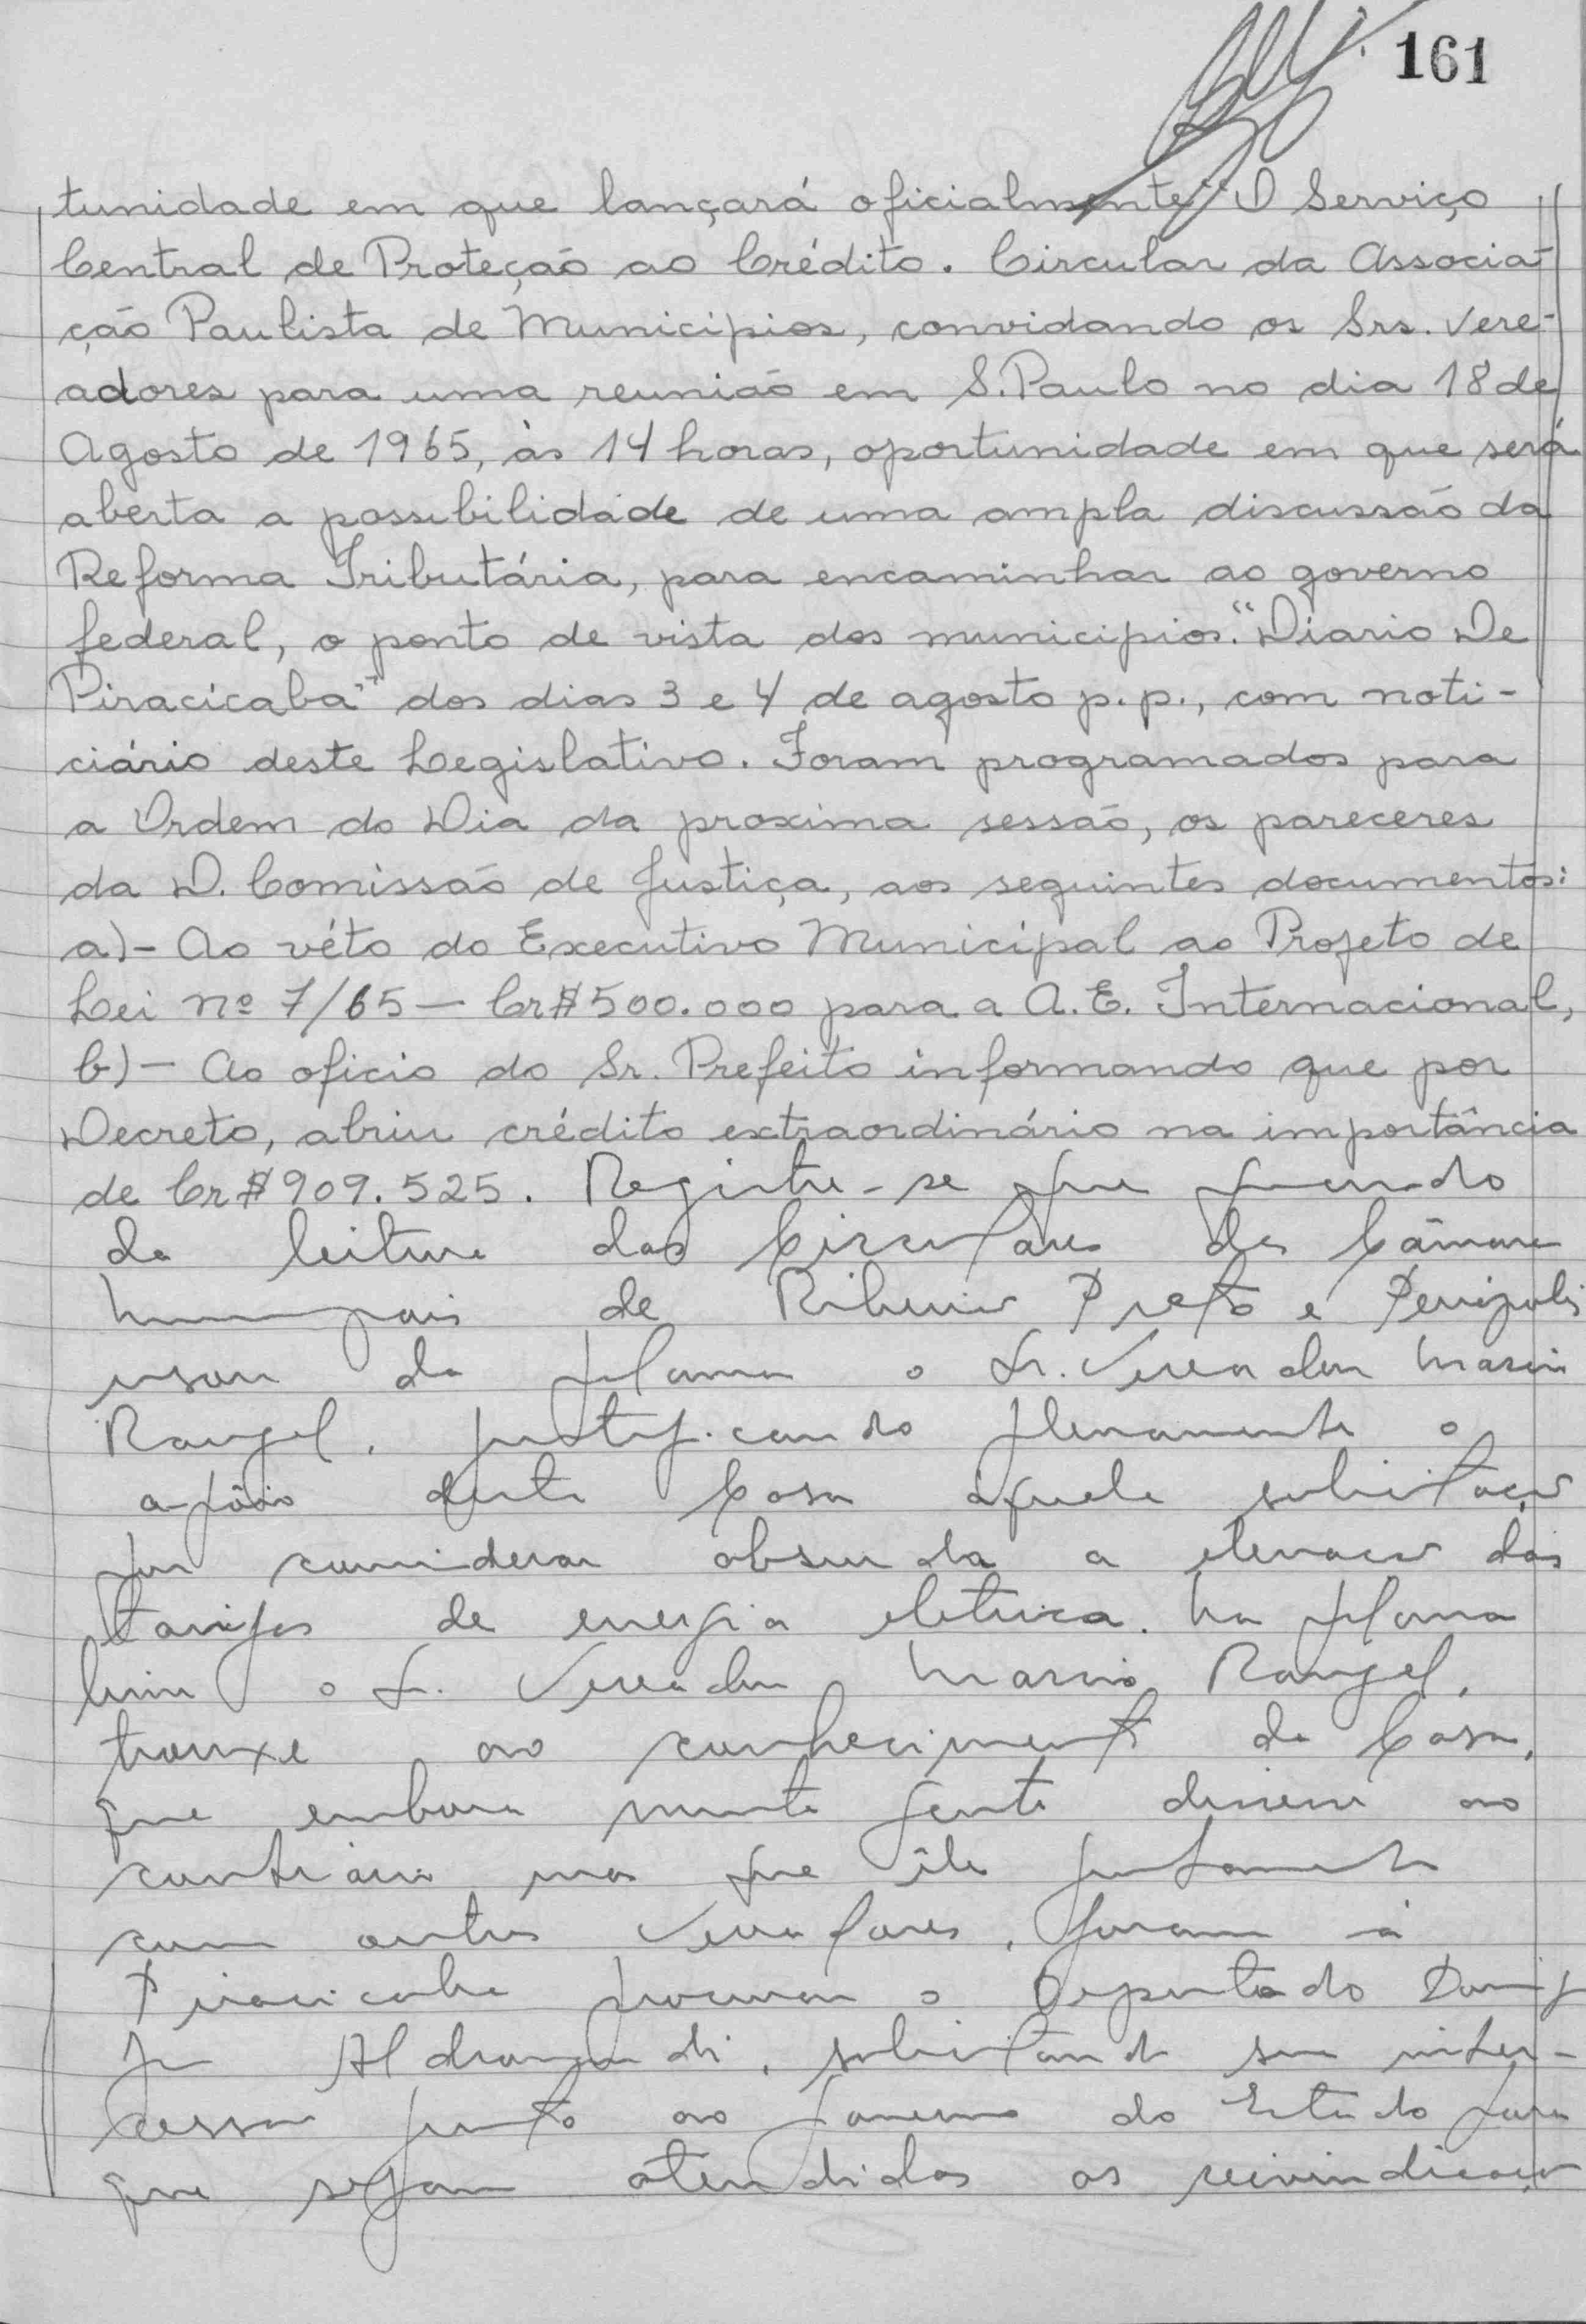 161
tunidade em que lançará oficialmente "O Serviço
Central de Proteção ao Crédito. Circular da Associa-
ção Paulista de Municipios, convidando os Srs. Vere-
adores para uma reunião em S. Paulo no dia 18 de
Agosto de 1965, às 14 horas, oportunidade em que será
aberta a possibilidade de uma ampla discussão da
Reforma Tributária, para encaminhar ao governo
federal, o ponto de vista dos municipios. "Diario De
Piracicaba" dos dias 3 e 4 de agosto p.p., com noti-
ciário deste Legislativo. Foram programados para
a Ordem do Dia da proxima sessão, os pareceres
da D. Comissão de Justiça, aos seguintes documentos:
a)- Ao véto do Executivo Municipal ao Projeto de
Lei nº 7/65 — Cr$ 500.000 para a A. E. Internacional,
b)- Ao oficio do Sr. Prefeito informando que por
Decreto, abriu crédito extraordinário na importância
de Cr$ 909.525. Registre-se que quando
da leitura das Circulares das Câmaras
Municipais de Ribeirão Preto e Penápolis
usou da palavra o Sr. Vereador Marcio
Rangel, justificando plenamente o
apôio desta Casa àquela solicitação
por considerar absurda a elevação das
tarifas de energia eletrica. Na palavra
o Sr. Vereador Marcio Rangel,
trouxe ao conhecimento da Casa,
que embora muita gente dissesse ao
contrário mas que êle juntamente
com outros Vereadores, foram à
Piracicaba procurar o Deputado
Aldrovandi, solicitando sua inter-
cessão junto ao Governo do Estado para
que sejam atendidas as reivindicações